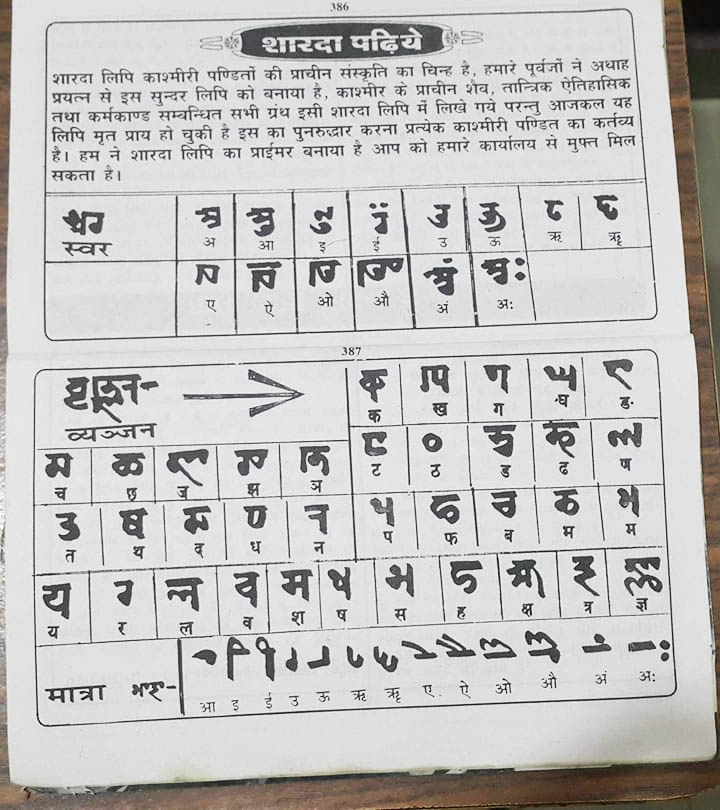 386
शारदा पढ़िये
शारदा लिपि काश्मीरी पण्डितों की प्राचीन संस्कृति का चिन्ह है, हमारे पूर्वजों ने अथाह
प्रयत्न से इस सुन्दर लिपि को बनाया है, काश्मीर के प्राचीन शैव, तान्त्रिक ऐतिहासिक
तथा कर्मकाण्ड सम्बन्धित सभी ग्रंथ इसी शारदा लिपि में लिखे गये परन्तु आजकल यह
लिपि मृत प्राय हो चुकी है इस का पुनरुद्धार करना प्रत्येक काश्मीरी पण्डित का कर्तव्य
है। हम ने शारदा लिपि का प्राईमर बनाया है आप को हमारे कार्यालय से मुफ्त मिल
सकता है।
𑆃 𑆄 𑆅 𑆆 𑆇 𑆈 𑆉 𑆊
स्वर अ आ इ ई उ ऊ ऋ ॠ
𑆍 𑆎 𑆏 𑆐 𑆃𑆁 𑆃𑆂
ए ऐ ओ औ अं अः
387
𑆑 𑆒 𑆓 𑆔 𑆕
क ख ग घ ङ
व्यञ्जन
𑆖 𑆗 𑆘 𑆙 𑆚 𑆛 𑆜 𑆝 𑆞 𑆟
च छ ज झ ञ ट ठ ड ढ ण
𑆠 𑆡 𑆢 𑆣 𑆤 𑆥 𑆦 𑆧 𑆨 𑆩
त थ द ध न प फ ब भ म
𑆪 𑆫 𑆬 𑆮 𑆯 𑆰 𑆱 𑆲 𑆑𑇀𑆰 𑆠𑇀𑆫 𑆘𑇀𑆚
य र ल व श ष स ह क्ष त्र ज्ञ
मात्रा
आ इ ई उ ऊ ऋ ॠ ए ऐ ओ औ अं अः